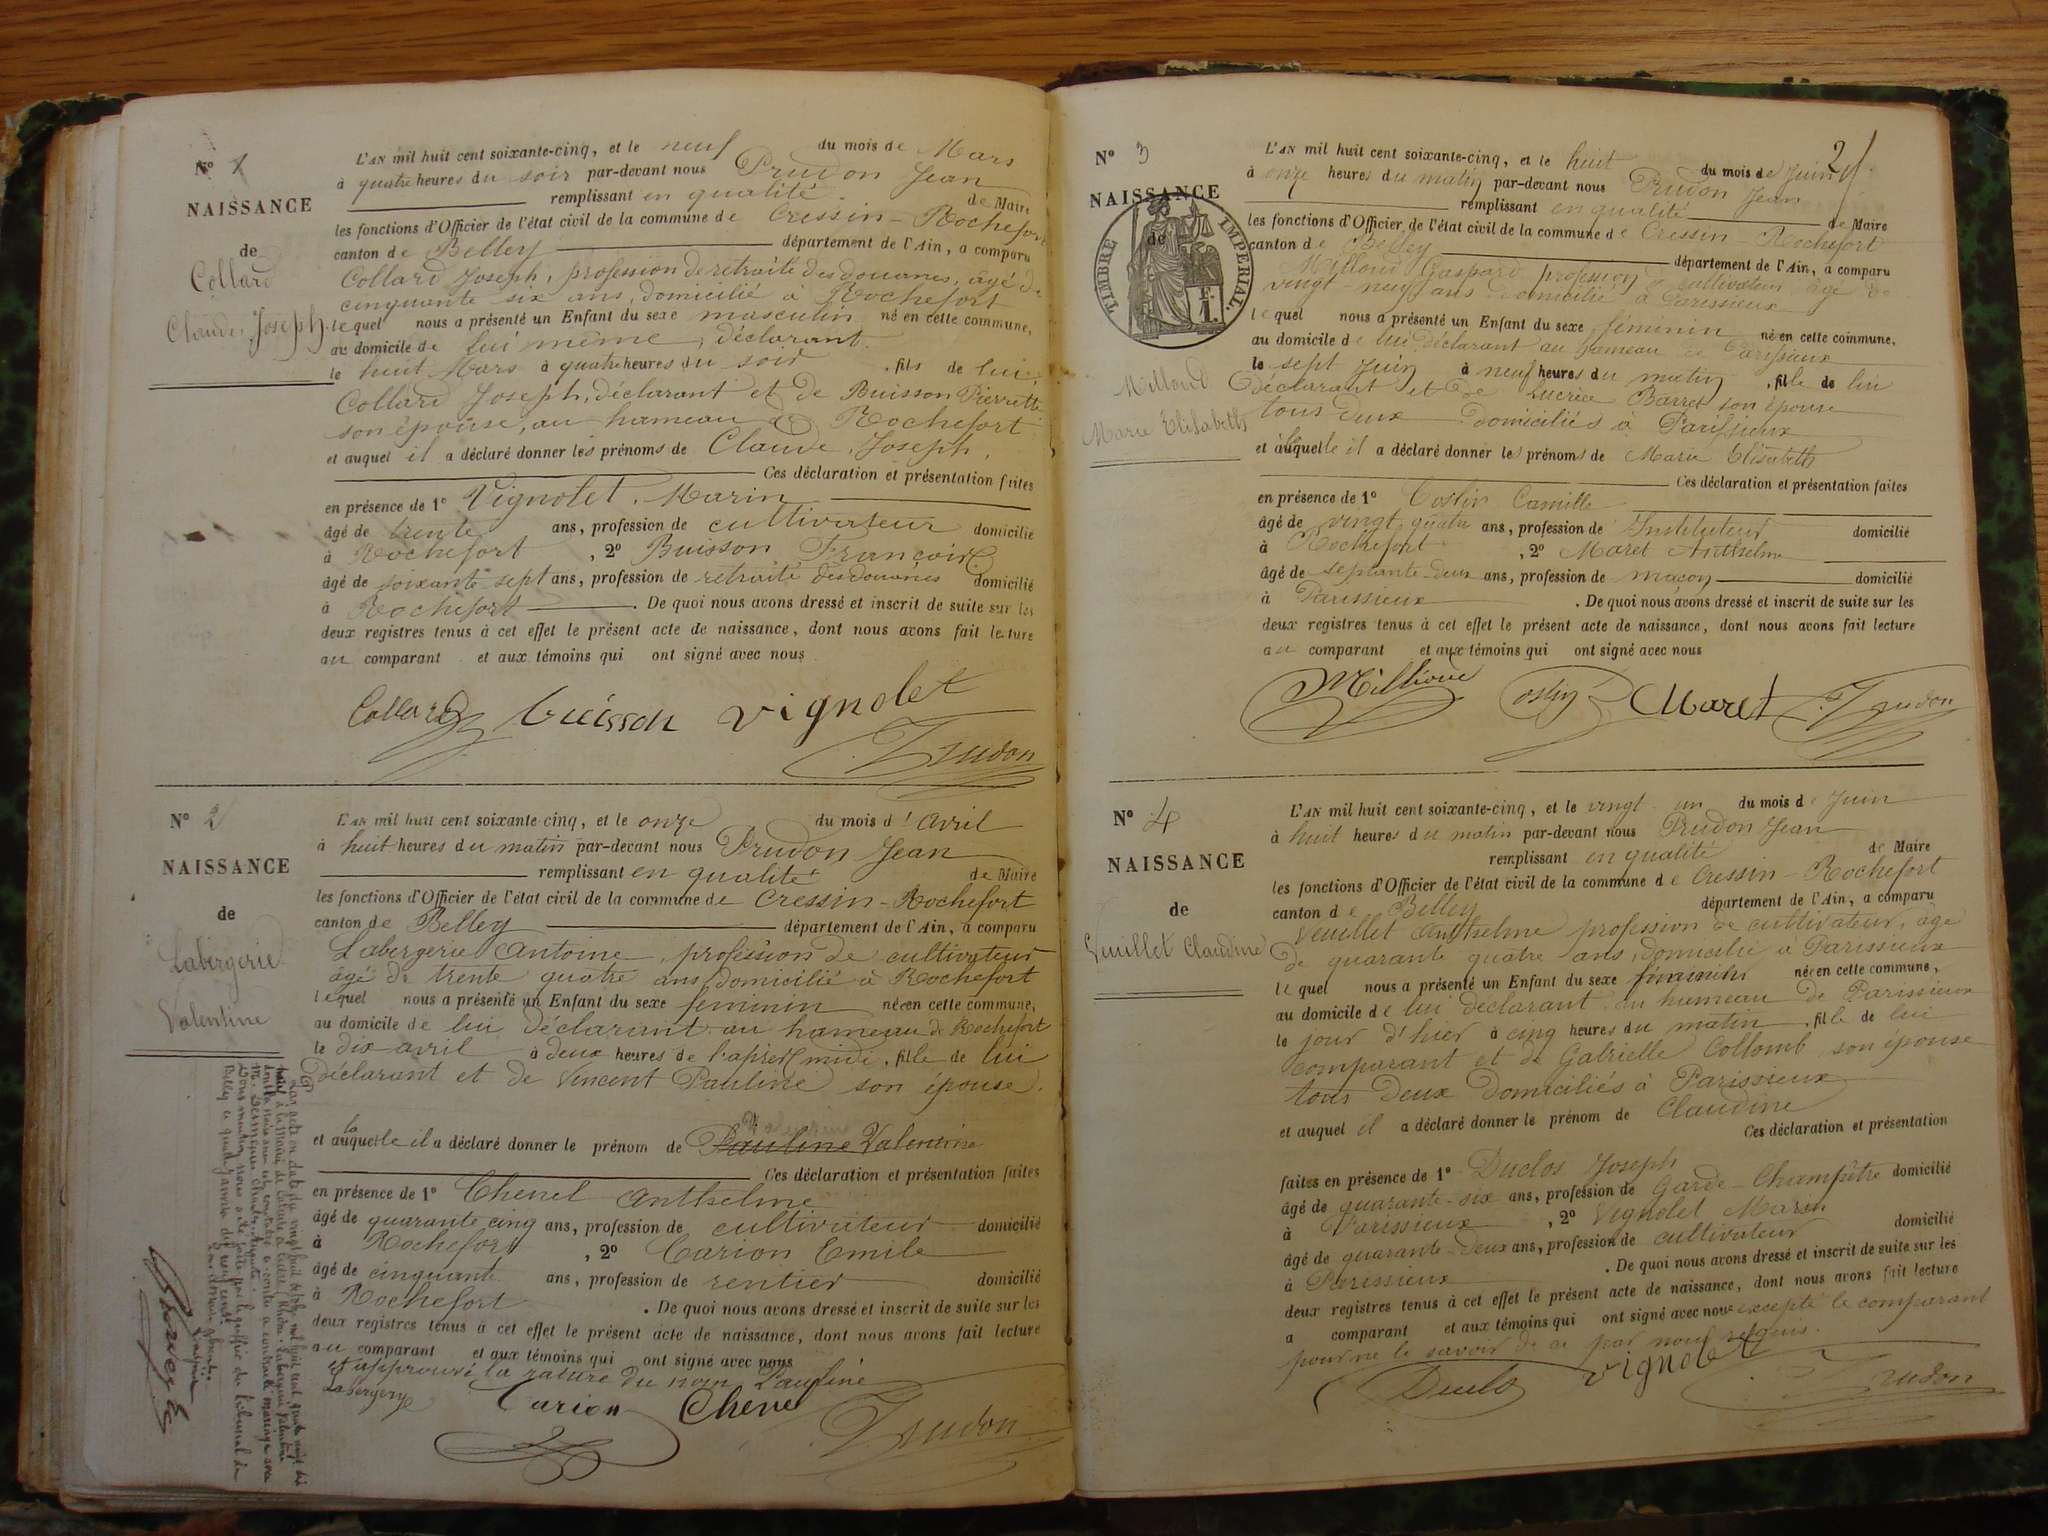 N° 1
NAISSANCE
de
Collard
Claude, Joseph.
L'AN mil huit cent soixante-cinq, et le neuf du mois de Mars
à quatre heures du soir par-devant nous Prudon Jean
remplissant en qualité de Maire
les fonctions d'Officier de l'état civil de la commune de Cressin-Rochefort
canton de Belley département de l'Ain, a comparu
Collard Joseph, profession de retraite des douanes, âgé de
cinquante six ans, domicilié à Rochefort
lequel nous a présenté un Enfant du sexe masculin né en cette commune,
au domicile de lui même, déclarant
le huit Mars à quatre heures du soir, fils de lui
Collard Joseph, déclarant et de Buisson Pierrette
son épouse, au hameau de Rochefort
et auquel il a déclaré donner les prénoms de Claude, Joseph,
Ces déclaration et présentation faites
en présence de 1° Vignolet, Marin
âgé de trente ans, profession de cultivateur domicilié
à Rochefort, 2° Buisson François
âgé de soixante sept ans, profession de retraité des douanes domicilié
à Rochefort. De quoi nous avons dressé et inscrit de suite sur les
deux registres tenus à cet effet le présent acte de naissance, dont nous avons fait lecture
au comparant et aux témoins qui ont signé avec nous
Collard Buisson Vignolet
Prudon
N° 2
NAISSANCE
de
Labergerie
Valentine
L'AN mil huit cent soixante-cinq, et le onze du mois d'avril
à huit heures du matin par-devant nous Prudon Jean
remplissant en qualité de Maire
les fonctions d'Officier de l'état civil de la commune de Cressin-Rochefort
canton de Belley département de l'Ain, a comparu
Labergerie Antoine, profession de cultivateur
âgé de trente quatre ans, domicilié à Rochefort
lequel nous a présenté un Enfant du sexe féminin née en cette commune,
au domicile de lui déclarant au hameau de Rochefort
le dix avril à deux heures de l'après midi, fille de lui
déclarant et de Vincent Pauline son épouse.
et à laquelle il a déclaré donner le prénom de Pauline Valentine
Ces déclaration et présentation faites
en présence de 1° Chenel Anthelme
âgé de quarante cinq ans, profession de cultivateur domicilié
à Rochefort, 2° Carion Emile
âgé de cinquante ans, profession de rentier domicilié
à Rochefort. De quoi nous avons dressé et inscrit de suite sur les
deux registres tenus à cet effet le présent acte de naissance, dont nous avons fait lecture
au comparant et aux témoins qui ont signé avec nous
et approuvé la rature du nom Pauline
Labergerye Carion Chenel
Prudon
N° 3
NAISSANCE
de
TIMBRE IMPERIAL
F. 1.
Milloud
Marie Elisabeth
2
L'AN mil huit cent soixante-cinq, et le huit du mois de Juin
à onze heures du matin par-devant nous Prudon Jean
remplissant en qualité de Maire
les fonctions d'Officier de l'état civil de la commune de Cressin-Rochefort
canton de Belley département de l'Ain, a comparu
Milloud Gaspard profession de cultivateur âgé de
vingt-neuf ans domicilié à Parissieux
lequel nous a présenté un Enfant du sexe féminin née en cette commune,
au domicile de lui déclarant au hameau de Parissieux
le sept Juin à neuf heures du matin, fille de lui
déclarant et de Lucrèce Barret son épouse
tous deux domiciliés à Parissieux
et à laquelle il a déclaré donner les prénoms de Marie Elisabeth
Ces déclaration et présentation faites
en présence de 1° Costin Camille
âgé de vingt quatre ans, profession de Instituteur domicilié
à Rochefort, 2° Maret Anthelme
âgé de septante-deux ans, profession de maçon domicilié
à Parissieux. De quoi nous avons dressé et inscrit de suite sur les
deux registres tenus à cet effet le présent acte de naissance, dont nous avons fait lecture
au comparant et aux témoins qui ont signé avec nous
Milloud Costin Maret Prudon
N° 4
NAISSANCE
de
Veuillet Claudine
L'AN mil huit cent soixante-cinq, et le vingt un du mois de Juin
à huit heures du matin par-devant nous Prudon Jean
remplissant en qualité de Maire
les fonctions d'Officier de l'état civil de la commune de Cressin-Rochefort
canton de Belley département de l'Ain, a comparu
Veuillet Anthelme profession de cultivateur, âgé
de quarante quatre ans, domicilié à Parissieux
lequel nous a présenté un Enfant du sexe féminin née en cette commune,
au domicile de lui déclarant au hameau de Parissieux
le jour d'hier à cinq heures du matin, fille de lui
comparant et de Gabrielle Collomb son épouse
tous deux domiciliés à Parissieux
et auquel il a déclaré donner le prénom de Claudine
Ces déclaration et présentation
faites en présence de 1° Duclos Joseph
âgé de quarante-six ans, profession de Garde-Champêtre domicilié
à Parissieux, 2° Vignolet Marin
âgé de quarante-deux ans, profession de cultivateur domicilié
à Parissieux. De quoi nous avons dressé et inscrit de suite sur les
deux registres tenus à cet effet le présent acte de naissance, dont nous avons fait lecture
a comparant et aux témoins qui ont signé avec nous excepté le comparant
pour ne le savoir de ce par nous requis.
Duclos Vignolet Prudon